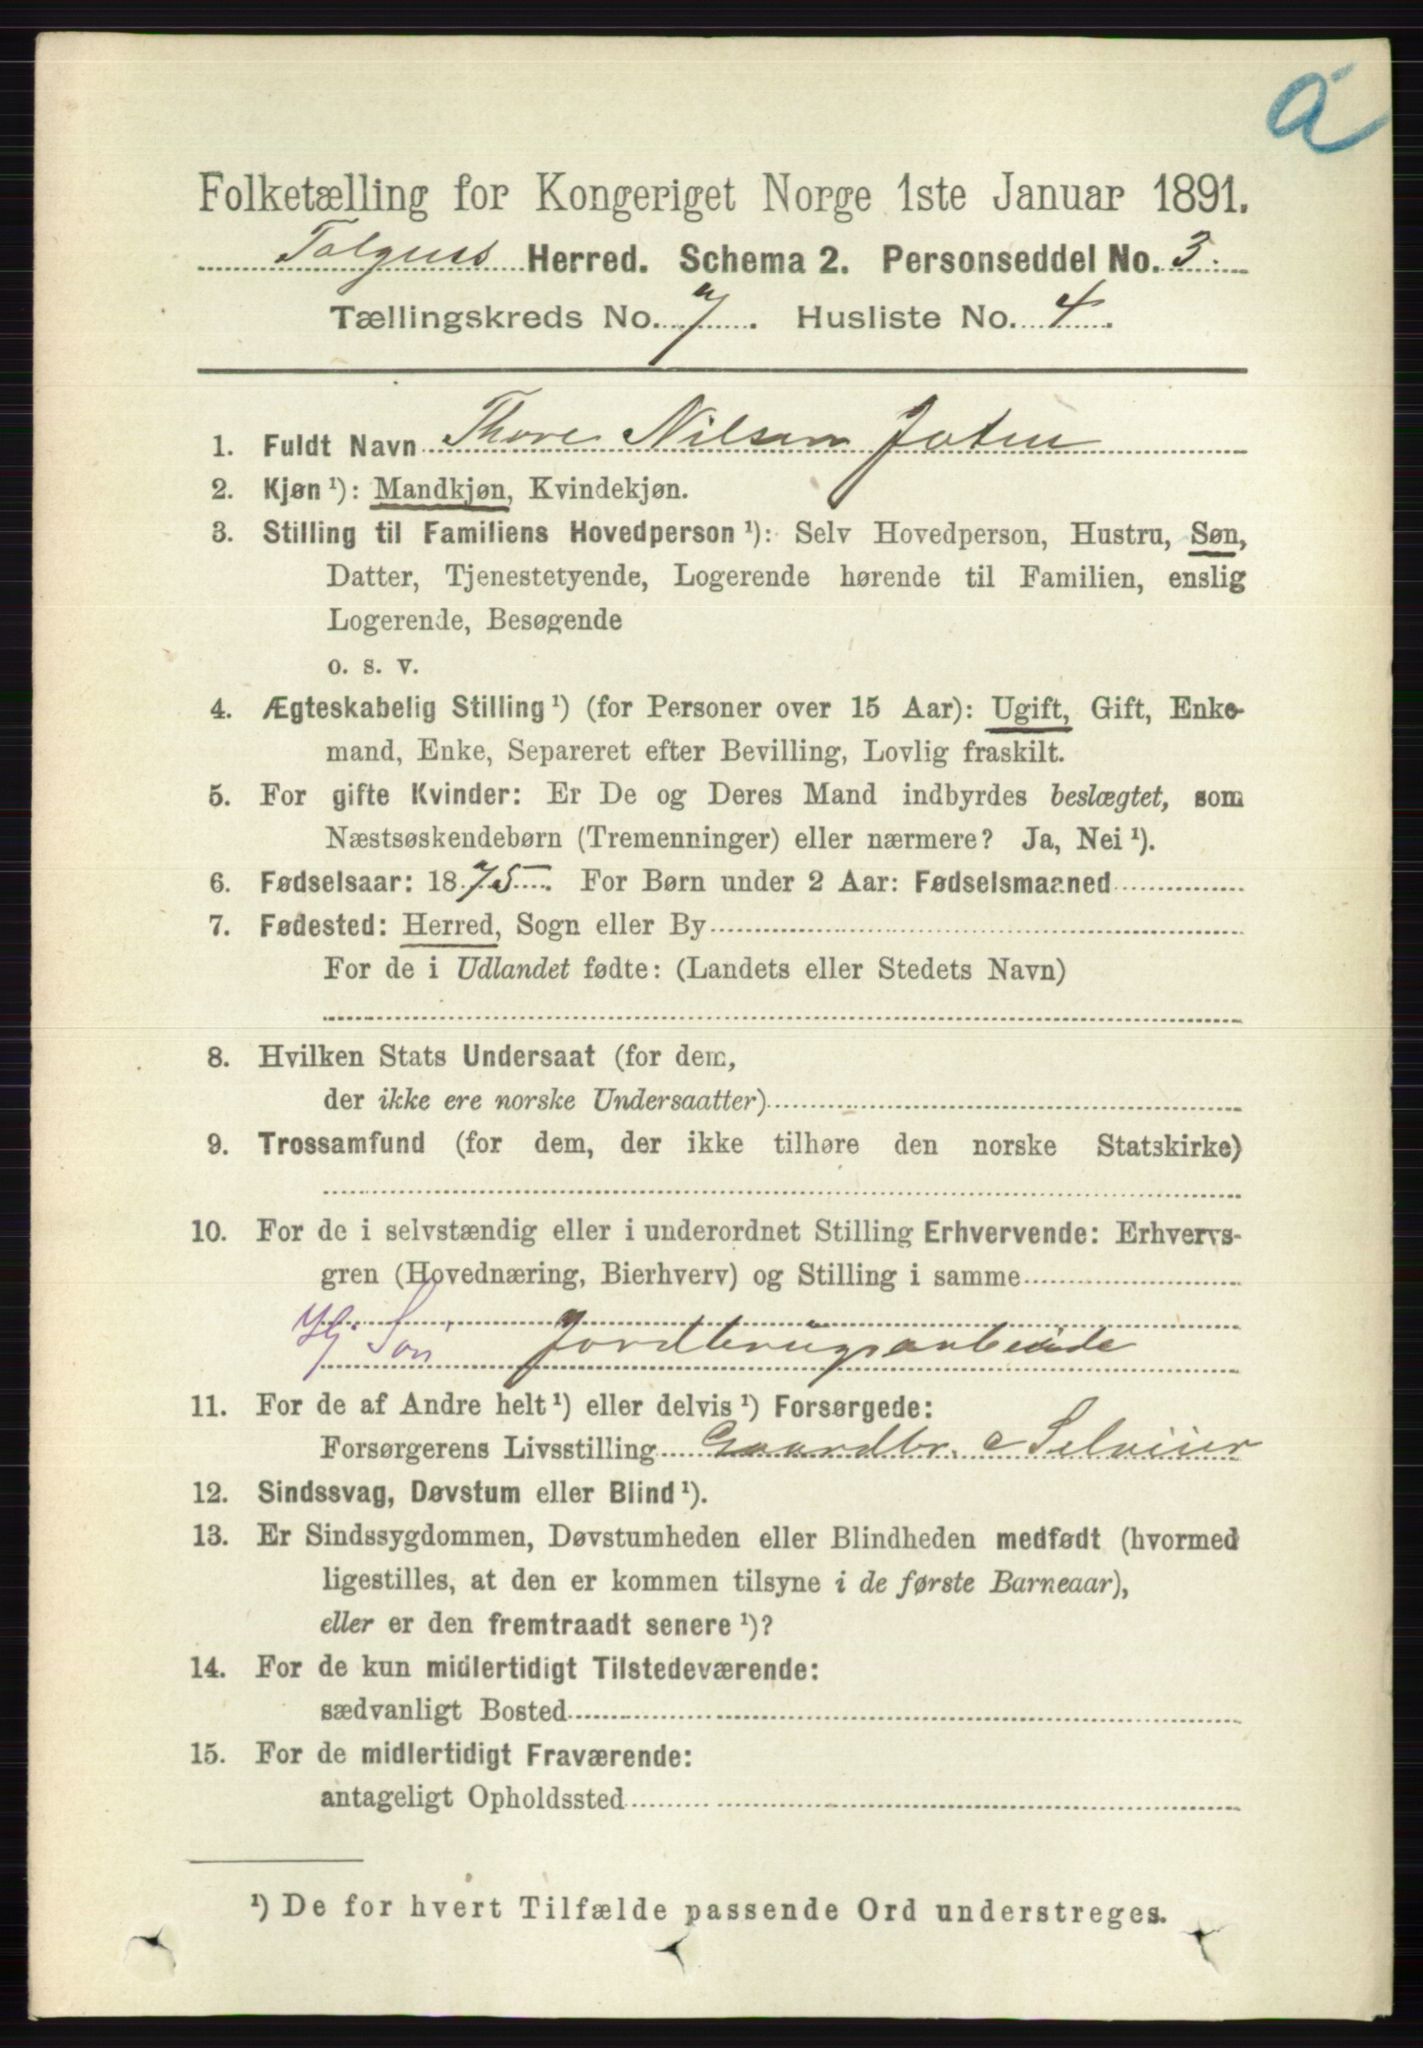 a
Folketælling for Kongeriget Norge 1ste Januar 1891.
Herred. Schema 2. Personseddel No. 3.
Tællingskreds No. 7. Husliste No. 4.
1. Fuldt Navn Thore Nilsen Joten
2. Kjøn ¹): Mandkjøn, Kvindekjøn.
3. Stilling til Familiens Hovedperson ¹): Selv Hovedperson, Hustru, Søn,
Datter, Tjenestetyende, Logerende hørende til Familien, enslig
Logerende, Besøgende
o. s. v.
4. Ægteskabelig Stilling ¹) (for Personer over 15 Aar): Ugift, Gift, Enke-
mand, Enke, Separeret efter Bevilling, Lovlig fraskilt.
5. For gifte Kvinder: Er De og Deres Mand indbyrdes beslægtet, som
Næstsøskendebørn (Tremenninger) eller nærmere? Ja, Nei ¹).
6. Fødselsaar: 1875. For Børn under 2 Aar: Fødselsmaaned
7. Fødested: Herred, Sogn eller By
For de i Udlandet fødte: (Landets eller Stedets Navn)
8. Hvilken Stats Undersaat (for dem,
der ikke ere norske Undersaatter)
9. Trossamfund (for dem, der ikke tilhøre den norske Statskirke)
10. For de i selvstændig eller i underordnet Stilling Erhvervende: Erhvervs-
gren (Hovednæring, Bierhverv) og Stilling i samme
Hj Søn Jordbrugsarbeide
11. For de af Andre helt ¹) eller delvis ¹) Forsørgede:
Forsørgerens Livsstilling Gaardbr. Selveier
12. Sindssvag, Døvstum eller Blind ¹).
13. Er Sindssygdommen, Døvstumheden eller Blindheden medfødt (hvormed
ligestilles, at den er kommen tilsyne i de første Barneaar),
eller er den fremtraadt senere ¹)?
14. For de kun midlertidigt Tilstedeværende:
sædvanligt Bosted
15. For de midlertidigt Fraværende:
antageligt Opholdssted
¹) De for hvert Tilfælde passende Ord understreges.